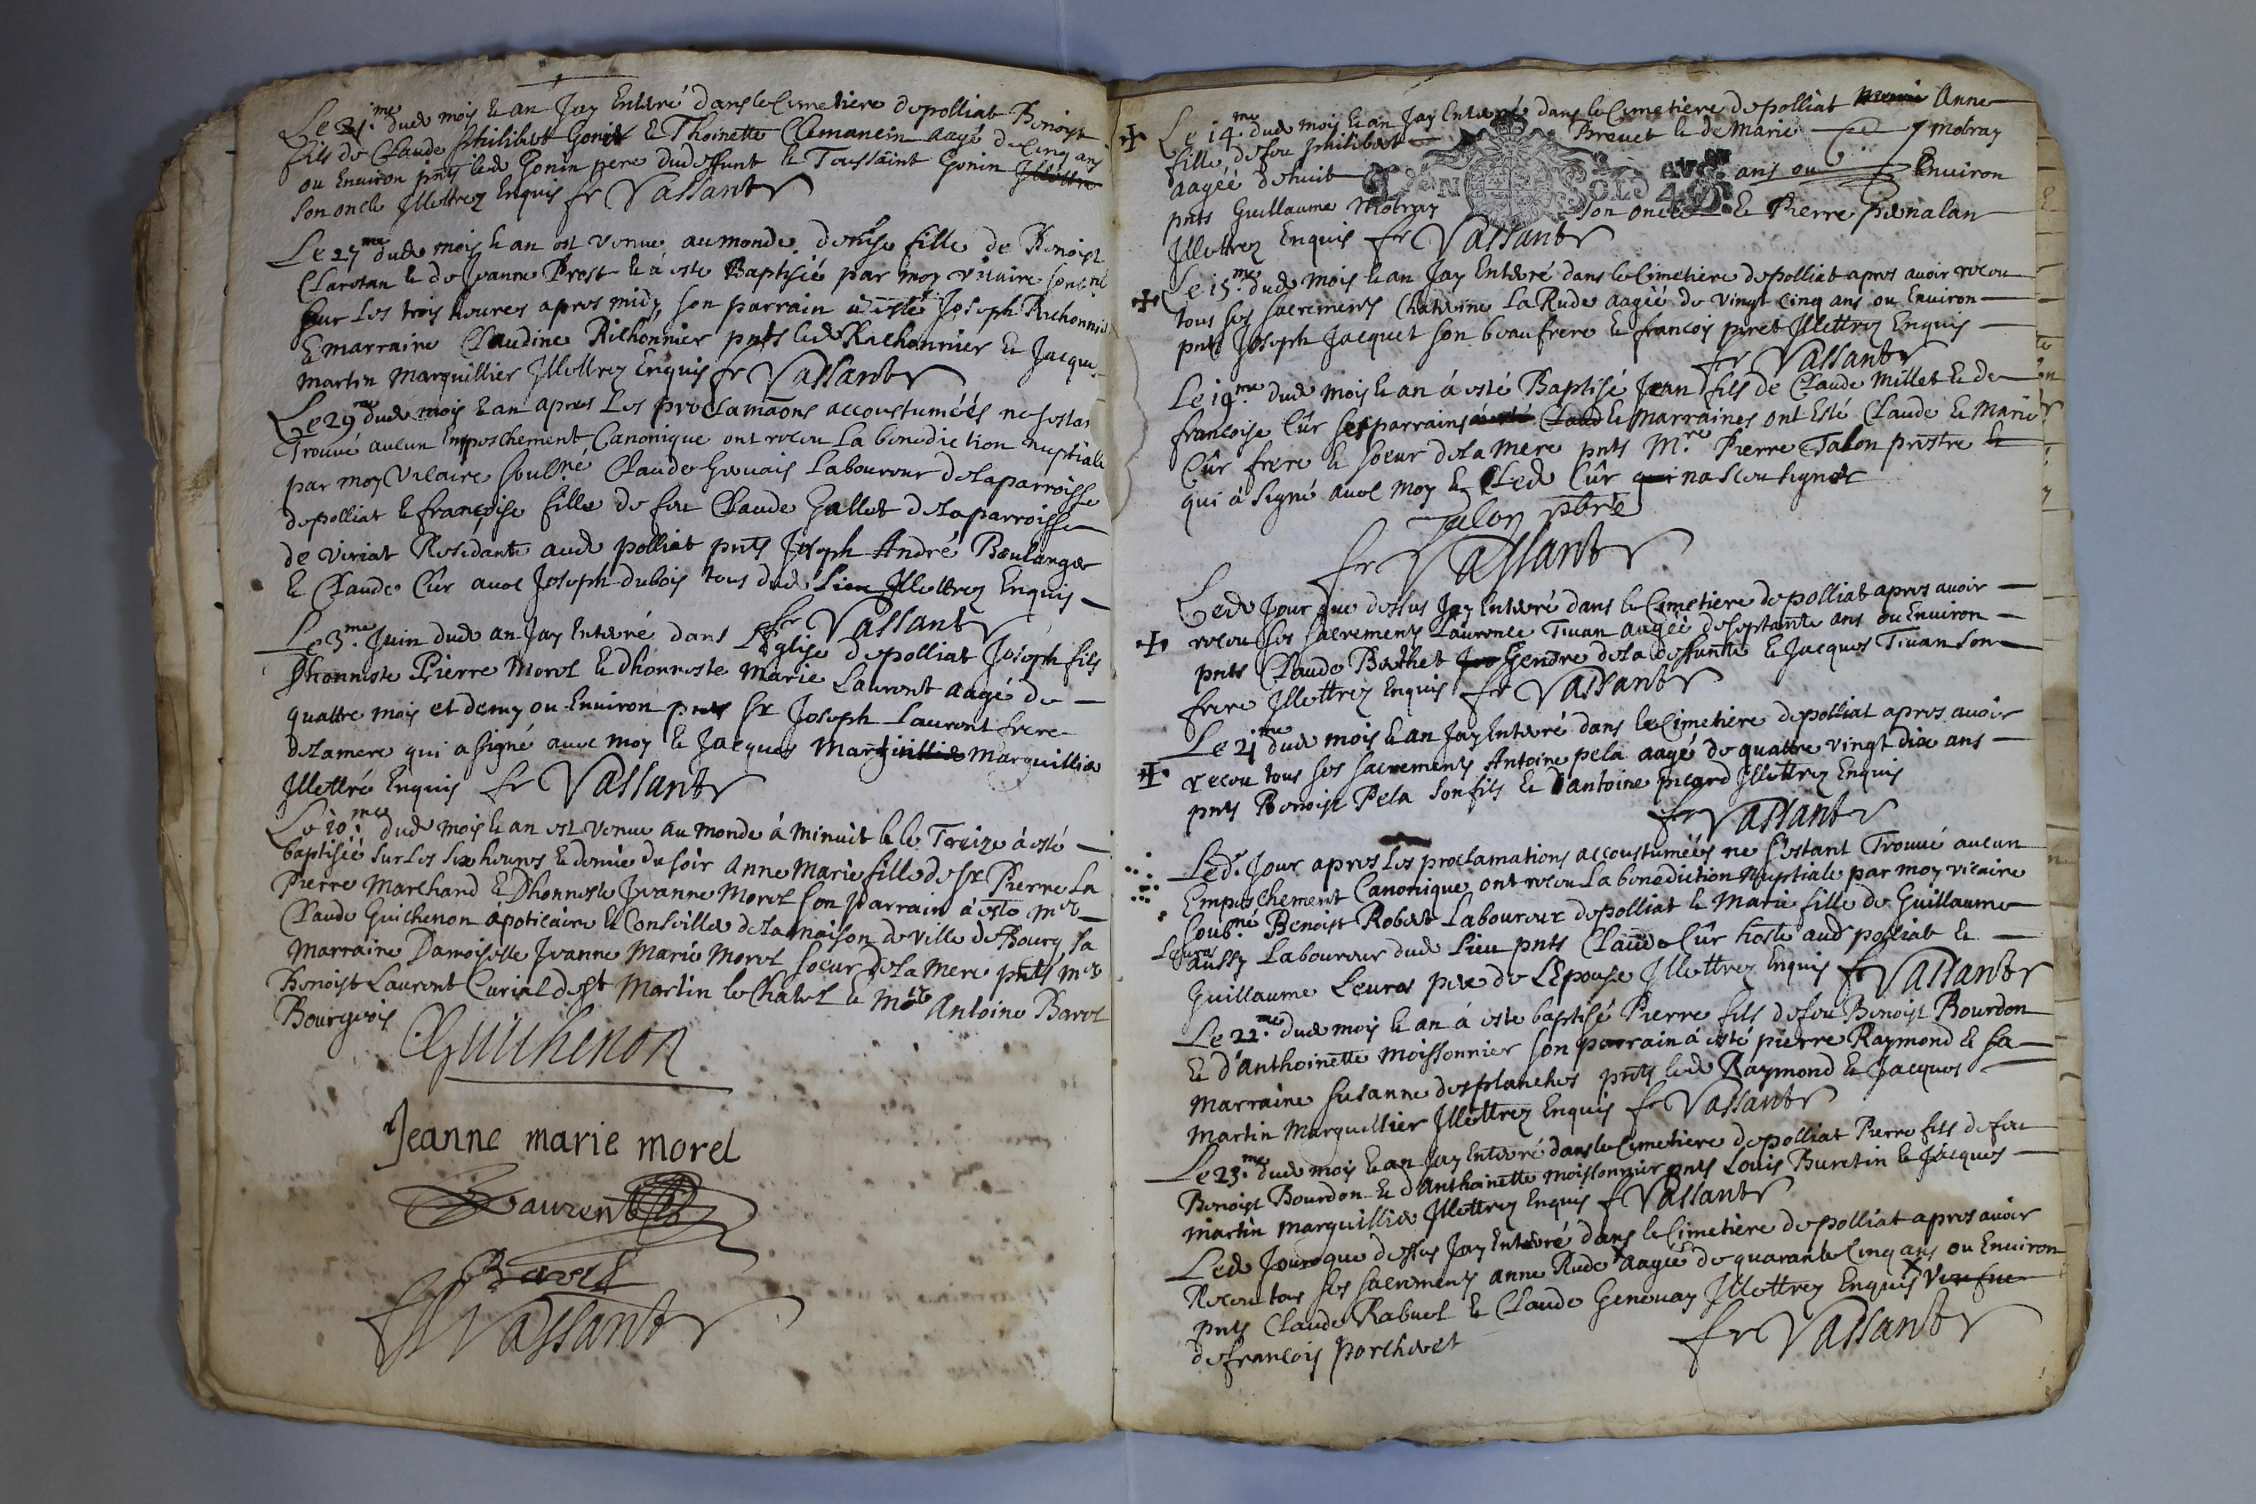 Le 21.me dud mois & an Jay Enterré dans le Cimetiere de polliat Benoist
fils de Claude philibert Gonin & Thoinette Clemancin aagé de Cinq ans
ou Environ pnts led Gonin pere dudeffunt & Toussaint Gonin
son oncle Illettrez Enquis fr Vassant
Le 27.me dud mois & an est venue au monde denise fille de Benoist
Clarotan & de Jeanne Prost & à este Baptisée par moy vicaire
sur Les trois heures apres midy son parrain a este Joseph Richonnier
& marraine Claudine Richonnier pnts led Richonnier & Jacque
martin marguillier Illettrez Enquis fr Vassant
Le 29.me dud mois & an apres Les proclamaons accoustumées ne sestant
Trouvé aucun Empeschement Canonique ont receu La benediction nuptiale
par moy Vicaire soub.né Claude Gervais Laboureur de la parroisse
de polliat & françoise fille de feu Claude Gallet de la parroisse
de viriat Residante aud polliat pnts Joseph André Boulanger
& Claude Cûr avec Joseph dubois tous dud Lieu Illettrez Enquis
fr Vassant
Le 3.me Juin dud an Jay Enterré dans L'Eglise de polliat Joseph fils
Dhonneste Pierre Morel & Dhonneste Marie Laurent aagé de
quattre mois et demy ou Environ pnts Sr Joseph Laurent frere
de la mere qui a signé avec moy & Jacques Marguillier
Illettré Enquis fr Vassant
Le 10.me dud mois & an est venue au monde à minuit & le Treize à esté
baptisée sur Les six heures & demie du soir Anne Marie fille de Sr Pierre La
Pierre Marchand & Dhonneste Jeanne Morel son parrain à este Me
Claude Guichenon apoticaire & Conseiller de la maison de ville de Bourg sa
marraine Damoiselle Jeanne Marie Morel soeur de la Mere pnts me
Benoist Laurent Curial de St Martin le Chatel & Antoine Barel
Bourgeois
Guichenon
Jeanne marie morel
Laurent
Barel
fr Vassant
Le 14.me dud mois & an Jay Enterré dans le Cimetiere de polliat Anne
fille de feu philibert Brevet & de Marie molray
aagée de huit ans ou Environ
pnts Guillaume molray son oncle & Pierre
Illettrez Enquis fr Vassant
Le 15.me dud mois & an Jay Enterré dans le Cimetiere de polliat apres avoir receu
tous ses sacremens Chaterine La Rude aagée de vingt cinq ans ou Environ
pnts Joseph Jacquet son beaufrere & françois piret Illettrez Enquis
fr Vassant
Le 19.me dud mois & an à esté Baptisé Jean fils de Claude Millet & de
françoise Cûr ses parrains & marraines ont Esté Claude & Marie
Cûr frere & soeur de la mere pnts Mre Pierre Talon prestre &
qui à signé avec moy & Led Cûr na sceu signer
Talon pbre
fr Vassant
Led Jour que dessus Jay Enterré dans le Cimetiere de polliat apres avoir
receu ses sacremens Laurence Tivan aagée de septante ans ou Environ
pnts Claude Berthet Gendre de la deffunte & Jacques Tivan son
frere Illettrez Enquis fr Vassant
Le 21.me dud mois & an Jay Enterré dans le Cimetiere de polliat apres avoir
receu tous ses sacremens Antoine pela aagé de quattre vingt dix ans
pnts Benoist Pela son fils & d'antoine picard Illettrez Enquis
fr Vassant
Led. Jour apres Les proclamations accoustumées ne sestant Trouvé aucun
Empeschement Canonique ont receu La benediction Nuptiale par moy vicaire
soub.né Benoist Robert Laboureur de polliat & Marie fille de Guillaume
Leuras aussy Laboureur dud Lieu pnts Claude Cûr hoste aud polliat &
Guillaume Leuras pere de L'Epouse Illettrez Enquis fr Vassant
Le 22.me dud mois & an à este baptisé Pierre fils de feu Benoist Bourdon
& d'Anthoinette Moissonnier son parrain à esté pierre Raymond & sa
marraine susanne desplanches pnts led Raymond & Jacques
martin marguillier Illettrez Enquis fr Vassant
Le 23.me dud mois & an Jay Enterré dans le Cimetiere de polliat Pierre fils de feu
Benoist Bourdon & d'Anthoinette Moissonnier pnts Louis Buretin & Jacques
martin marguillier Illettrez Enquis fr Vassant
Led Jour que dessus Jay Enterré dans le Cimetiere de polliat apres avoir
Receu tous ses sacremens anne Rude aagée de quarante Cinq ans ou Environ
pnts Claude Rabuel & Claude Genevay Illettrez Enquis Veufue
de françois porcheret
fr Vassant